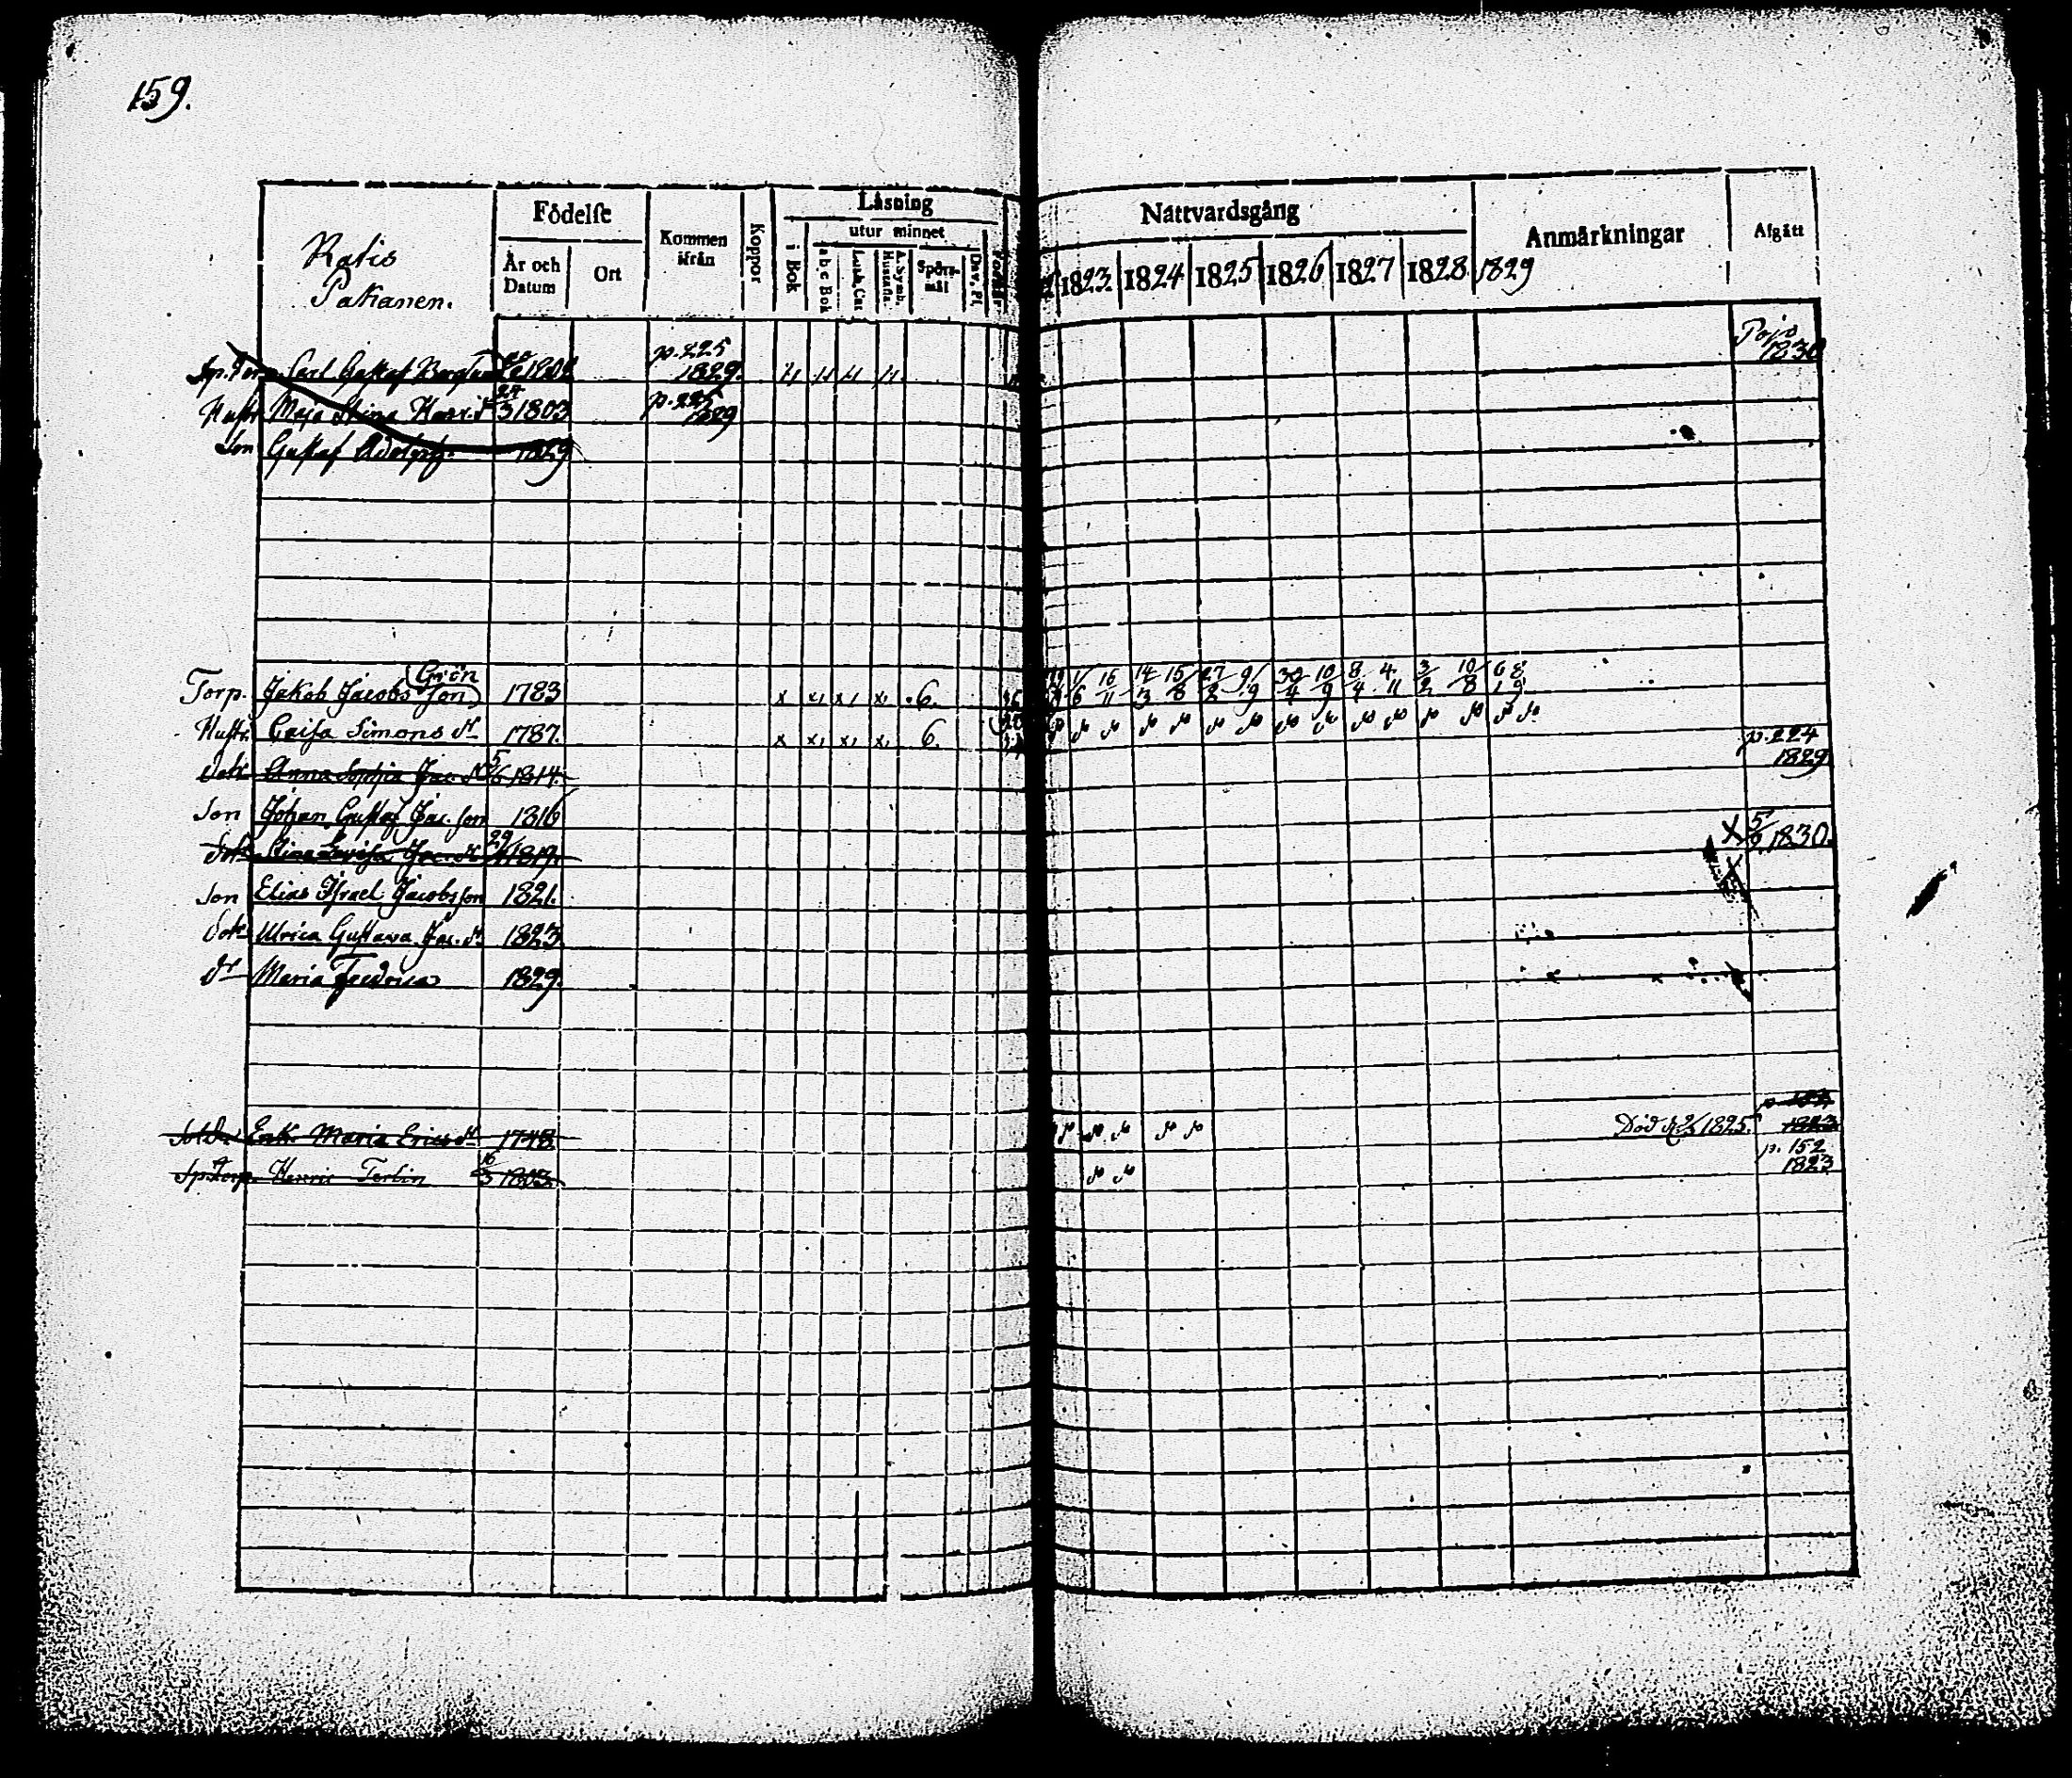 159.
Födelse
Kommen ifrån
Koppor
Läsning
utur minnet
i Bok
a b c Bok
Luth. Cat.
A. Symb. Hustafla.
Spörsmål
Dav. Ps.
Nattvardsgång
Anmärkningar
Afgått
Pakanen.
År och Datum
Ort
1823. 1824 1825 1826 1827 1828. 1829
Carl Gustaf p. 225 1829. 1830
Hustr. Maja Stina Henr. dr 27/3 1803 p. 225 1829
Son Gustaf Adolph. 1829
Grön
Torp. Jakob Jacobs son 1783 x x x x 6. 1/6 16/11 14/3 15/8 27/2 9/9 30/4 10/9 8/4 4/11 3/2 10/8 6/1 8/9
Hustr. Caisa Simons dr 1787. x x x x 6.
Dotr Anna Sophia Jac. dr 5/6 1814. p. 224 1829
Son Johan Gustaf Jac. son 1816
Dotr Stina Lovisa Jac. dr 29/ 1819. X 5/ 1830.
Son Elias Israel Jacobsson 1821.
Dotr Ulrica Gustava Jac. dr 1823
dr Maria Fredrica 1829.
Enk. Maria Erics dr 1748. Död 1825. 1823
Sp. Torp. Henric Terlin 16/3 1803. p. 152 1823